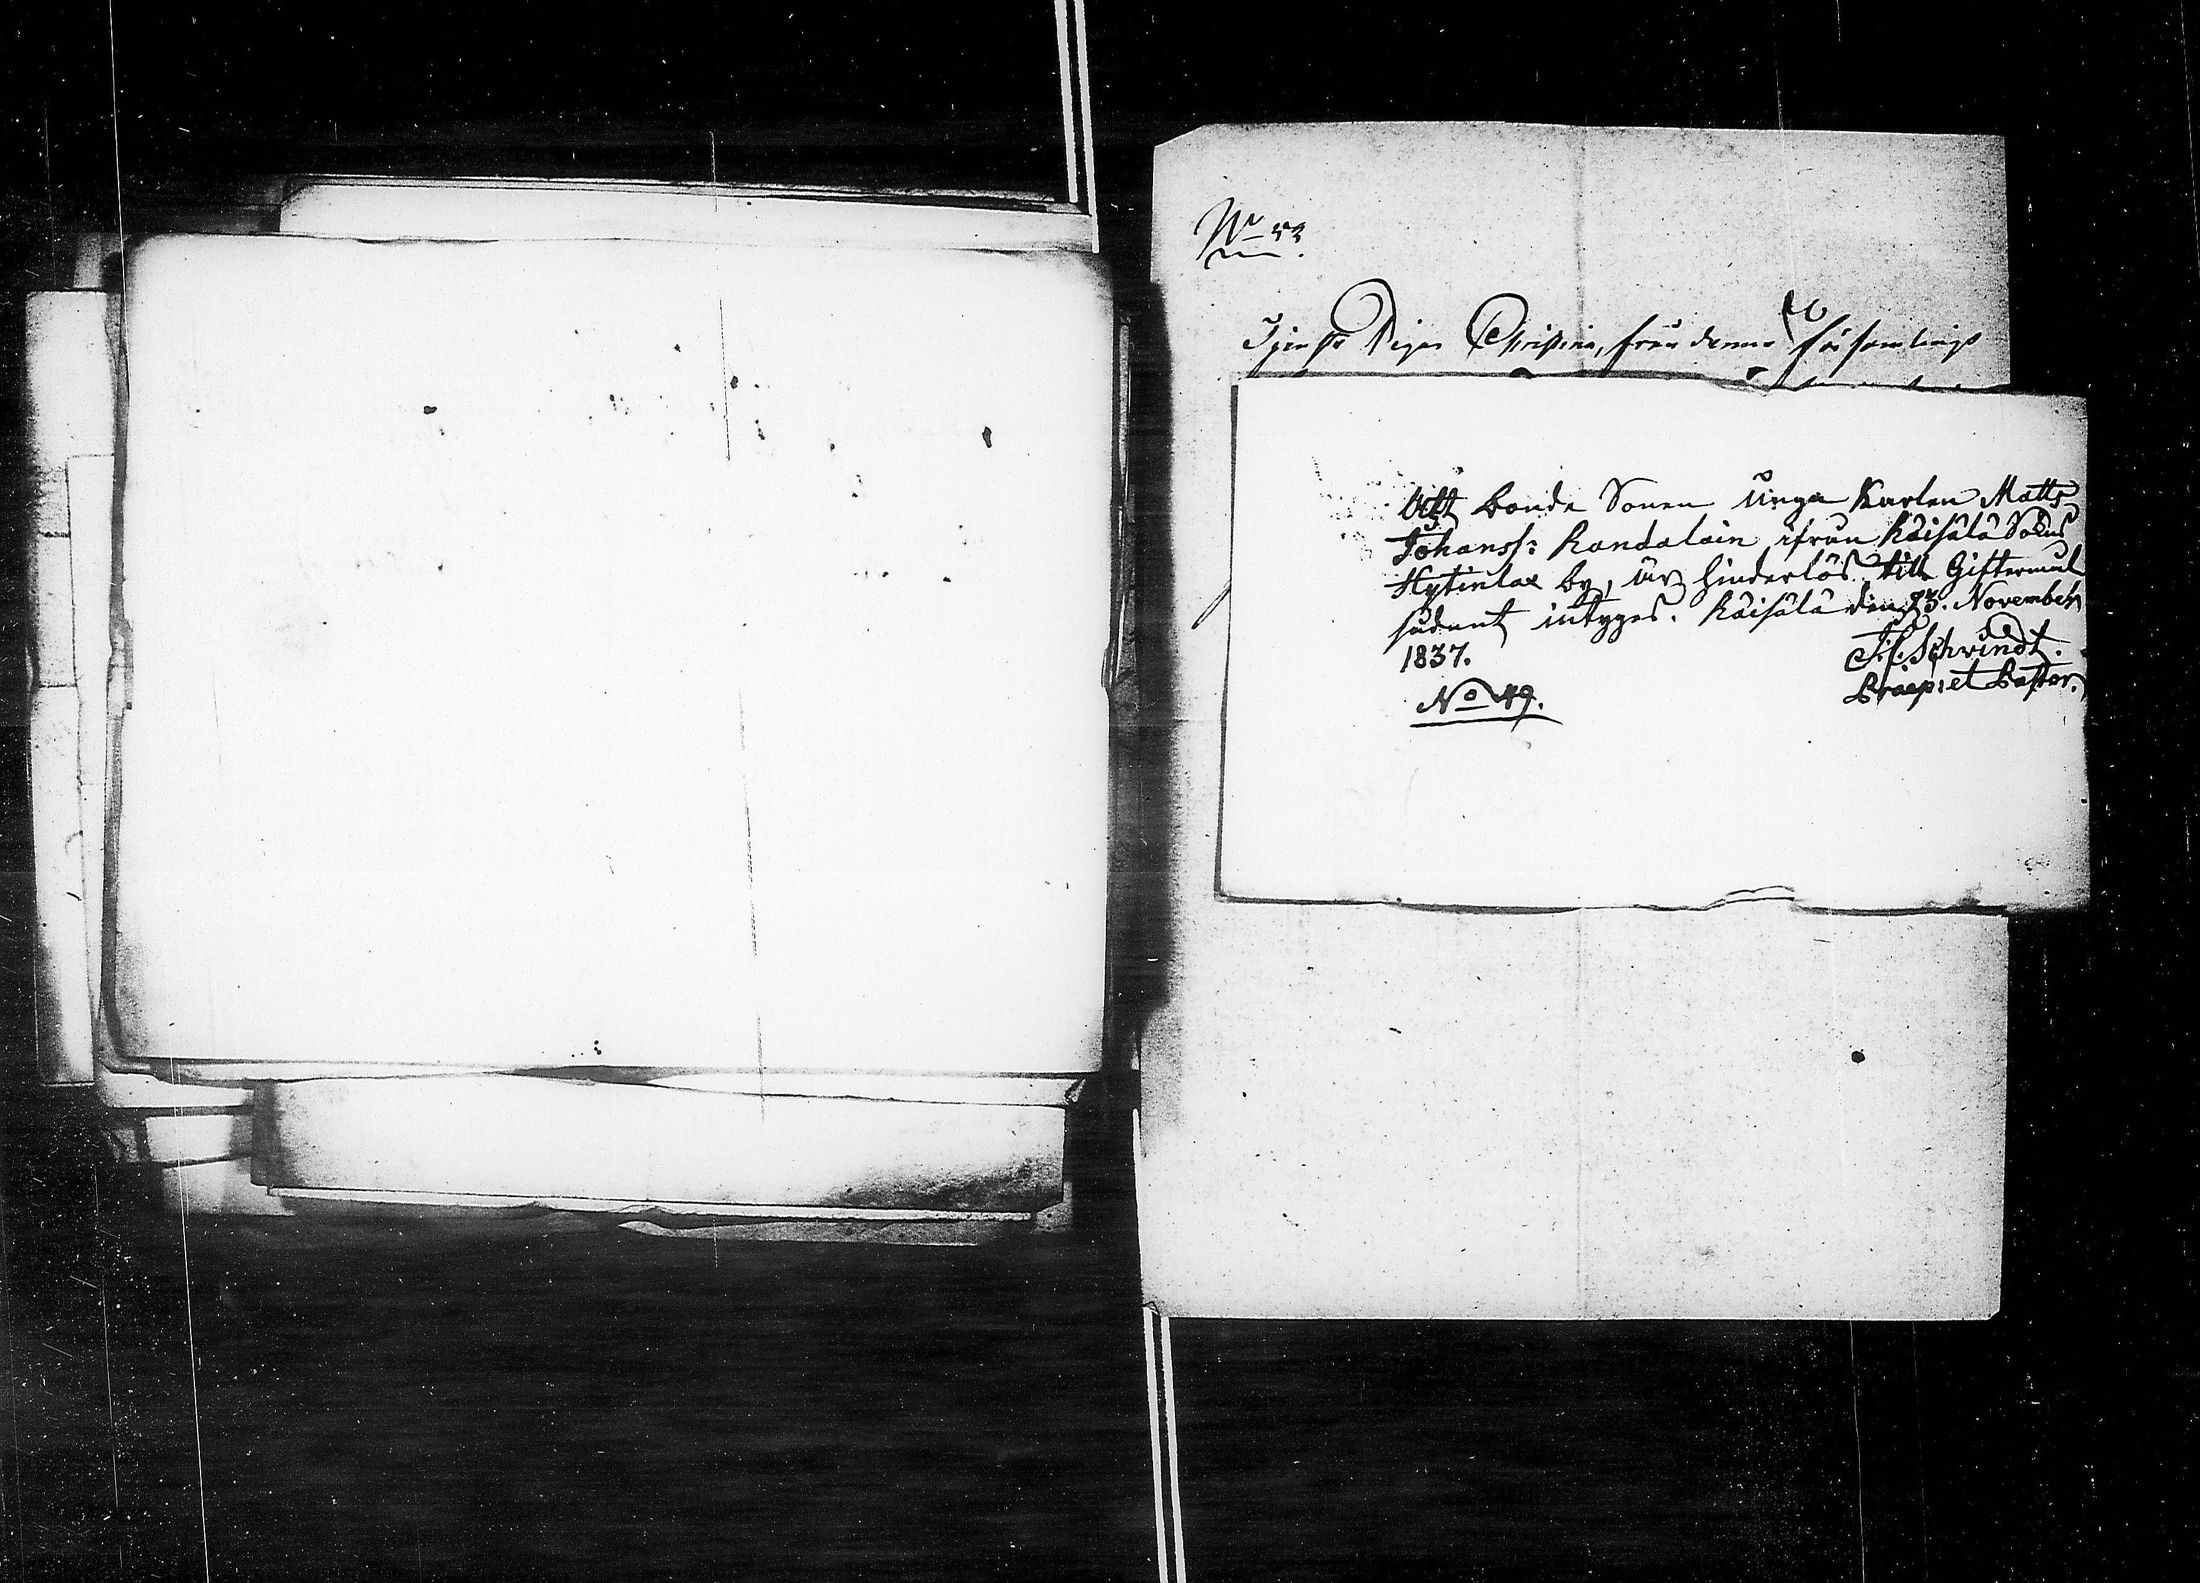 No 53.
Tjenste Pigan Christina, från denna Församlings
Att bonde Sonen Unga Karlen Matts
Johanss: Kandolain ifrån Käisälä Sokns
Hytinlax by, är hinderlös till Giftermål
sådant intyges. Käisälä den 23. November
1837.
J. f. Schvindt.
Praep: et Pastor.
No 49.